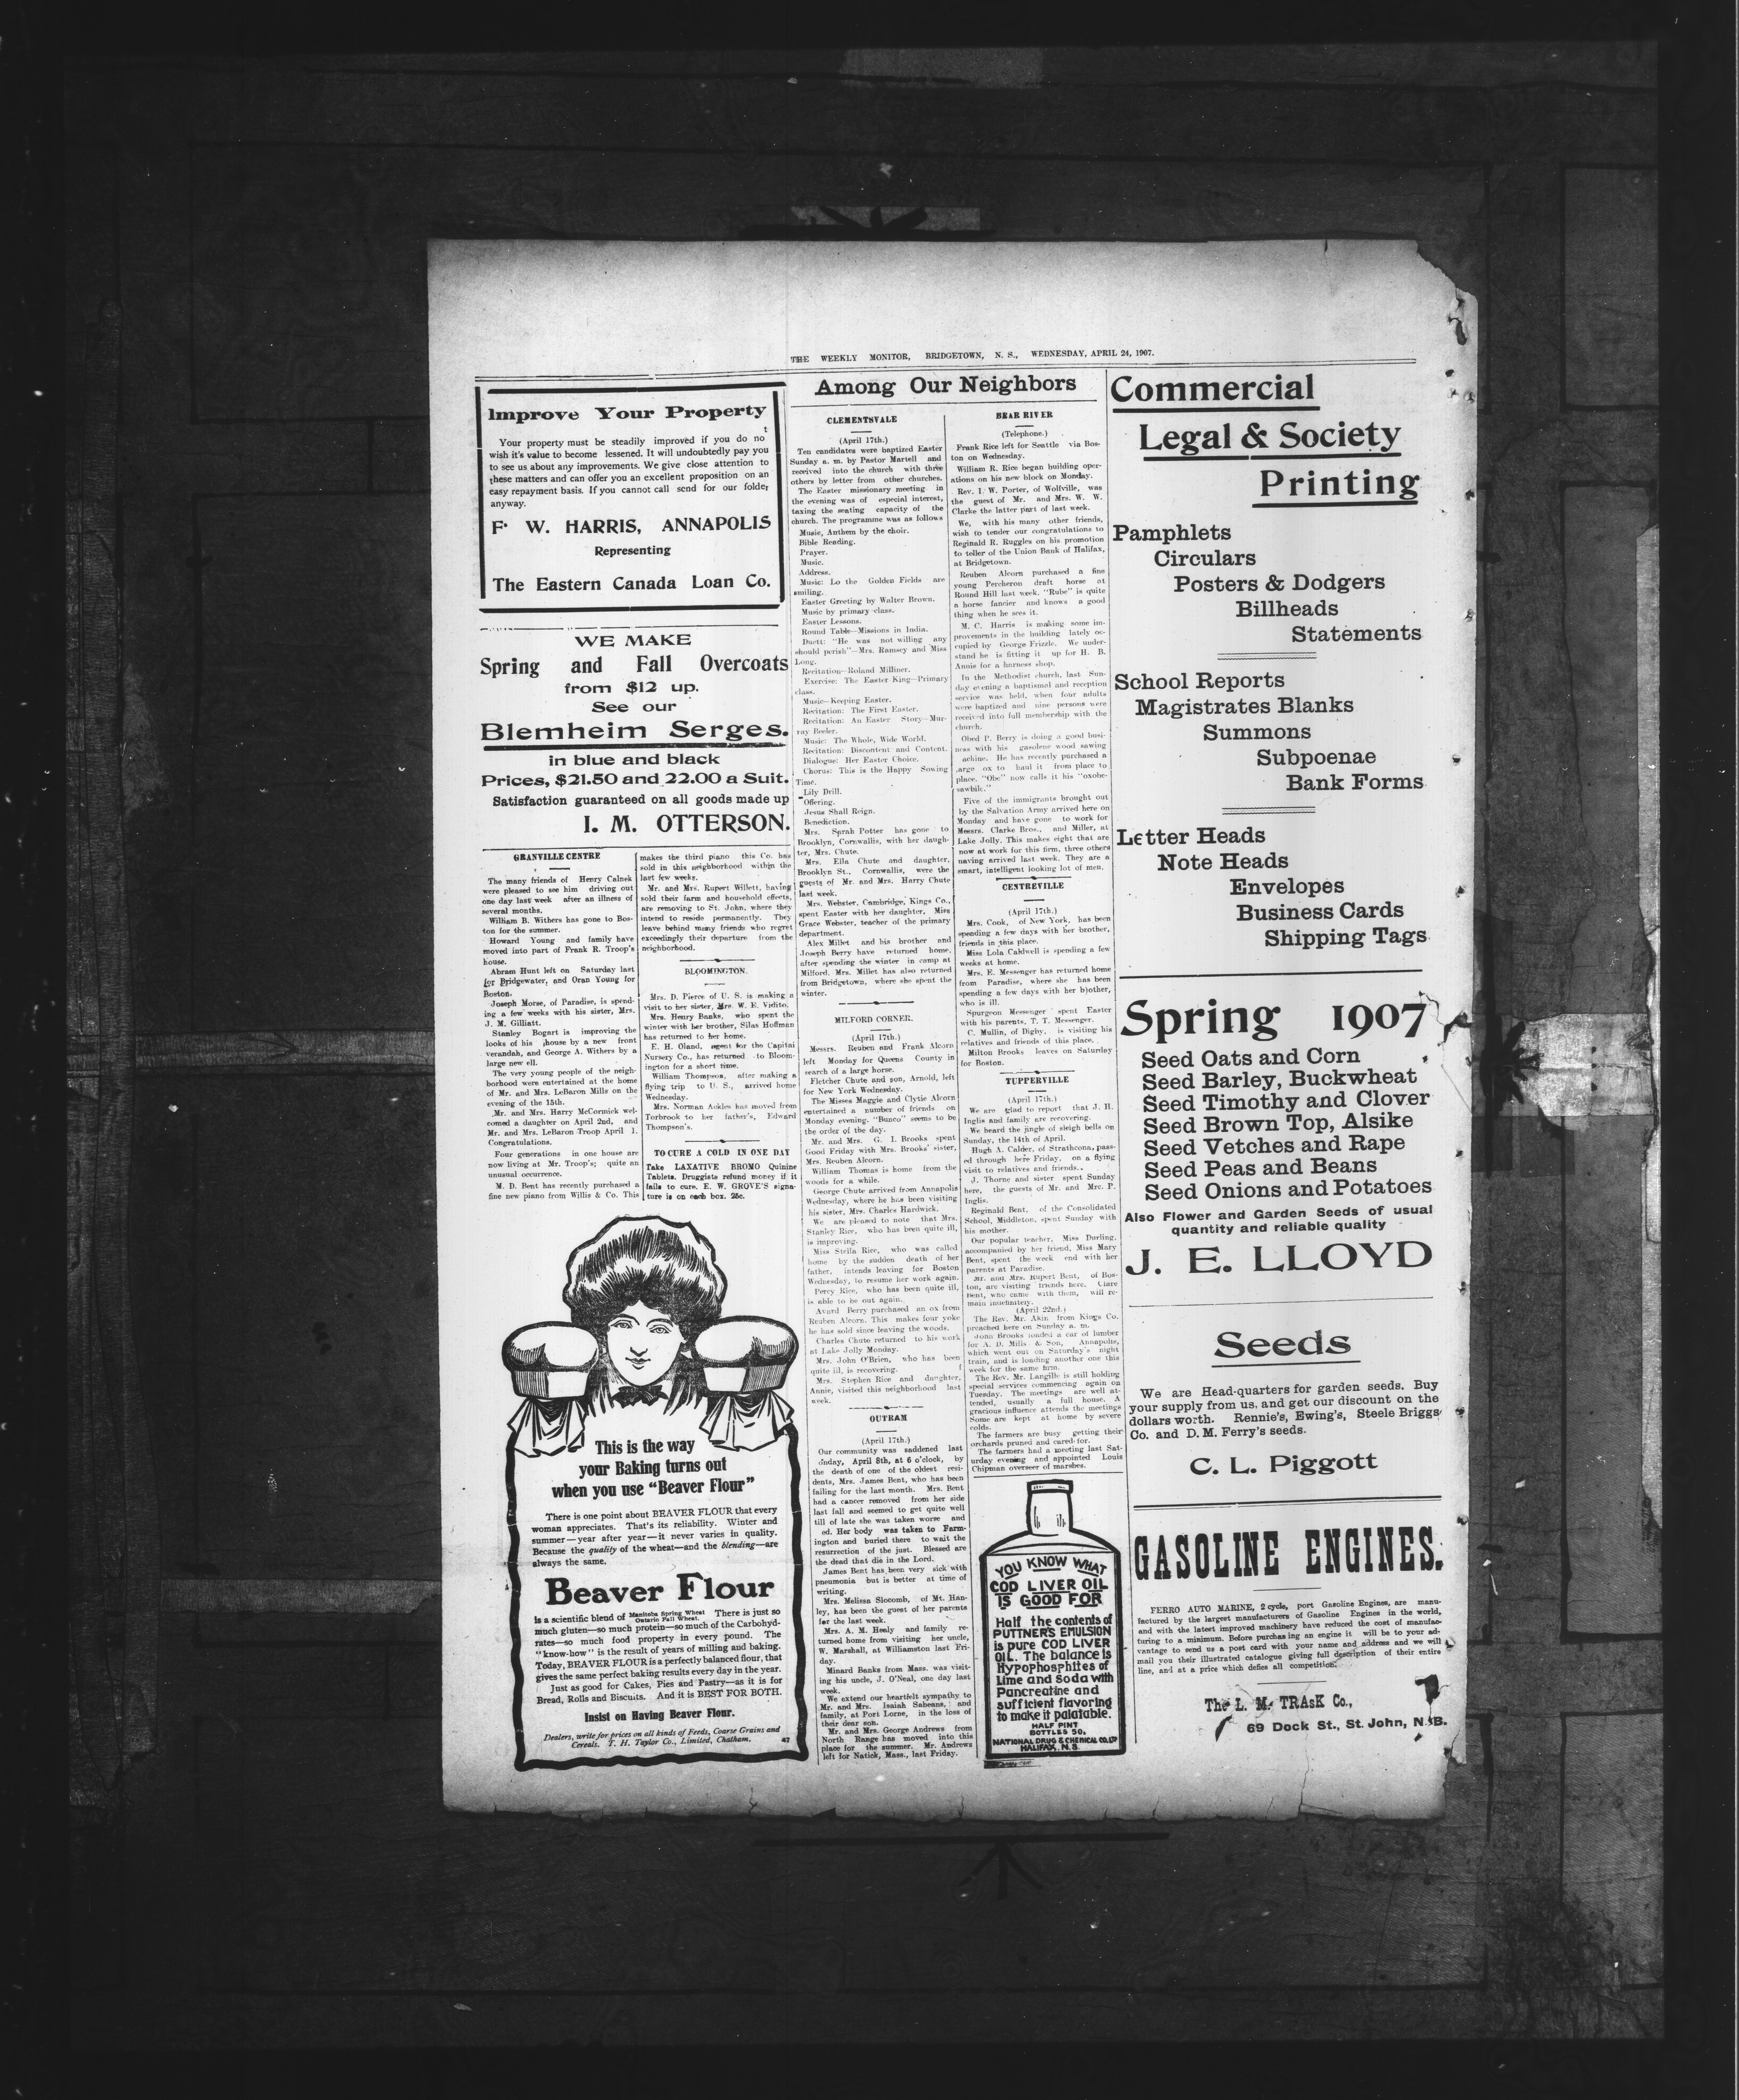 THE WEEKLY MONITOR, BRIDGETOWN, N. S., WEDNESDAY, APRIL 24, 1907.
Improve Your Property
t
Your property must be steadily improved if you do no
wish it's value to become lessened. It will undoubtedly pay you
to see us about any improvements. We give close attention to
these matters and can offer you an excellent proposition on an
easy repayment basis. If you cannot call send for our folder
anyway.
F. W. HARRIS, ANNAPOLIS
Representing
The Eastern Canada Loan Co.
WE MAKE
Spring and Fall Overcoats
from $12 up.
See our
Blemheim Serges.
in blue and black
Prices, $21.50 and 22.00 a Suit.
Satisfaction guaranteed on all goods made up
I. M. OTTERSON.
GRANVILLE CENTRE
The many friends of Henry Calnek
were pleased to see him driving out
one day last week after an illness of
several months.
William B. Withers has gone to Bos-
ton for the summer.
Howard Young and family have
moved into part of Frank R. Troop's
house.
Abram Hunt left on Saturday last
for Bridgewater, and Oran Young for
Boston.
Joseph Morse, of Paradise, is spend-
ing a few weeks with his sister, Mrs.
J. M. Gilliatt.
Stanley Bogart is improving the
looks of his house by a new front
verandah, and George A. Withers by a
large new ell.
The very young people of the neigh-
borhood were entertained at the home
of Mr. and Mrs. LeBaron Mills on the
evening of the 15th.
Mr. and Mrs. Harry McCormick wel-
comed a daughter on April 2nd, and
Mr. and Mrs. LeBaron Troop April 1.
Congratulations.
Four generations in one house are
now living at Mr. Troop's; quite an
unusual occurrence.
M. D. Bent has recently purchased a
fine new piano from Willis & Co. This
makes the third piano this Co. has
sold in this neighborhood within the
last few weeks.
Mr. and Mrs. Rupert Willett, having
sold their farm and household effects,
are removing to St. John, where they
intend to reside permanently. They
leave behind many friends who regret
exceedingly their departure from the
neighborhood.
BLOOMINGTON.
Mrs. D. Pierce of U. S. is making a
visit to her sister, Mrs. W. E. Vidito.
Mrs. Henry Banks, who spent the
winter with her brother, Silas Hoffman
has returned to her home.
E. H. Oland, agent for the Capital
Nursery Co., has returned to Bloom-
ington for a short time.
William Thompson, after making a
flying trip to U. S., arrived home
Wednesday.
Mrs. Norman Ackles has moved from
Torbrook to her father's, Edward
Thompson's.
TO CURE A COLD IN ONE DAY
Take LAXATIVE BROMO Quinine
Tablets. Druggists refund money if it
fails to cure. E. W. GROVE'S signa-
ture is on each box. 25c.
This is the way
your Baking turns out
when you use "Beaver Flour"
There is one point about BEAVER FLOUR that every
woman appreciates. That's its reliability. Winter and
summer—year after year—it never varies in quality.
Because the quality of the wheat—and the blending—are
always the same.
Beaver Flour
is a scientific blend of Manitoba Spring Wheat Ontario Fall Wheat. There is just so
much gluten—so much protein—so much of the Carbohyd-
rates—so much food property in every pound. The
"know-how" is the result of years of milling and baking.
Today, BEAVER FLOUR is a perfectly balanced flour, that
gives the same perfect baking results every day in the year.
Just as good for Cakes, Pies and Pastry—as it is for
Bread, Rolls and Biscuits. And it is BEST FOR BOTH.
Insist on Having Beaver Flour.
Dealers, write for prices on all kinds of Feeds, Coarse Grains and
Cereals. T. H. Taylor Co., Limited, Chatham. 47
Among Our Neighbors
CLEMENTSVALE
(April 17th.)
Ten candidates were baptized Easter
Sunday a. m. by Pastor Martell and
received into the church with three
others by letter from other churches.
The Easter missionary meeting in
the evening was of especial interest,
taxing the seating capacity of the
church. The programme was as follows
Music, Anthem by the choir.
Bible Reading.
Prayer.
Music.
Address.
Music: Lo the Golden Fields are
smiling.
Easter Greeting by Walter Brown.
Music by primary class.
Easter Lessons.
Round Table—Missions in India.
Duett: "He was not willing any
should perish"—Mrs. Ramsey and Miss
Long.
Recitation—Roland Milliner.
Exercise: The Easter King—Primary
class.
Music—Keeping Easter.
Recitation: The First Easter.
Recitation: An Easter Story—Mur-
ray Beeler.
Music: The Whole, Wide World.
Recitation: Discontent and Content.
Dialogue: Her Easter Choice.
Chorus: This is the Happy Sowing
Time.
Lily Drill.
Offering.
Jesus Shall Reign.
Benediction.
Mrs. Sarah Potter has gone to
Brooklyn, Cornwallis, with her daugh-
ter, Mrs. Chute.
Mrs. Ella Chute and daughter,
Brooklyn St., Cornwallis, were the
guests of Mr. and Mrs. Harry Chute
last week.
Mrs. Webster, Cambridge, Kings Co.,
spent Easter with her daughter, Miss
Grace Webster, teacher of the primary
department.
Alex Millet and his brother and
Joseph Berry have returned home,
after spending the winter in camp at
Milford. Mrs. Millet has also returned
from Bridgetown, where she spent the
winter.
MILFORD CORNER.
(April 17th.)
Messrs. Reuben and Frank Alcorn
left Monday for Queens County in
search of a large horse.
Fletcher Chute and son, Arnold, left
for New York Wednesday.
The Misses Maggie and Clytie Alcorn
entertained a number of friends on
Monday evening. "Bunco" seems to be
the order of the day.
Mr. and Mrs. G. I. Brooks spent
Good Friday with Mrs. Brooks' sister,
Mrs. Reuben Alcorn.
William Thomas is home from the
woods for a while.
George Chute arrived from Annapolis
Wednesday, where he has been visiting
his sister, Mrs. Charles Hardwick.
We are pleased to note that Mrs.
Stanley Rice, who has been quite ill,
is improving.
Miss Stella Rice, who was called
home by the sudden death of her
father, intends leaving for Boston
Wednesday, to resume her work again.
Percy Rice, who has been quite ill,
is able to be out again.
Avard Berry purchased an ox from
Reuben Alcorn. This makes four yoke
he has sold since leaving the woods.
Charles Chute returned to his work
at Lake Jolly Monday.
Mrs. John O'Brien, who has been
quite ill, is recovering.
Mrs. Stephen Rice and daughter,
Annie, visited this neighborhood last
week.
OUTRAM
(April 17th.)
Our community was saddened last
onday, April 8th, at 6 o'clock, by
the death of one of the oldest resi-
dents, Mrs. James Bent, who has been
failing for the last month. Mrs. Bent
had a cancer removed from her side
last fall and seemed to get quite well
till of late she was taken worse and
ed. Her body was taken to Farm-
ington and buried there to wait the
resurrection of the just. Blessed are
the dead that die in the Lord.
James Bent has been very sick with
pneumonia but is better at time of
writing.
Mrs. Melissa Slocomb, of Mt. Han-
ley, has been the guest of her parents
for the last week.
Mrs. A. M. Healy and family re-
turned home from visiting her uncle,
W. Marshall, at Williamston last Fri-
day.
Minard Banks from Mass. was visit-
ing his uncle, J. O'Neal, one day last
week.
We extend our heartfelt sympathy to
Mr. and Mrs. Isaiah Sabeans, and
family, at Port Lorne, in the loss of
their dear son.
Mr. and Mrs. George Andrews from
North Range has moved into this
place for the summer. Mr. Andrews
left for Natick, Mass., last Friday.
BEAR RIVER
(Telephone.)
Frank Rice left for Seattle via Bos-
ton on Wednesday.
William R. Rice began building oper-
ations on his new block on Monday.
Rev. I. W. Porter, of Wolfville, was
the guest of Mr. and Mrs. W. W.
Clarke the latter part of last week.
We, with his many other friends,
wish to tender our congratulations to
Reginald R. Ruggles on his promotion
to teller of the Union Bank of Halifax,
at Bridgetown.
Reuben Alcorn purchased a fine
young Percheron draft horse at
Round Hill last week. "Rube" is quite
a horse fancier and knows a good
thing when he sees it.
M. C. Harris is making some im-
provements in the building lately oc-
cupied by George Frizzle. We under-
stand he is fitting it up for H. B.
Annis for a harness shop.
In the Methodist church, last Sun-
day evening a baptismal and reception
service was held, when four adults
were baptized and nine persons were
received into full membership with the
church.
Obed P. Berry is doing a good busi-
ness with his gasolene wood sawing
achine. He has recently purchased a
large ox to haul it from place to
place. "Obe" now calls it his "oxobe-
sawbilc."
Five of the immigrants brought out
by the Salvation Army arrived here on
Monday and have gone to work for
Messrs. Clarke Bros., and Miller, at
Lake Jolly. This makes eight that are
now at work for this firm, three others
having arrived last week. They are a
smart, intelligent looking lot of men.
CENTREVILLE
(April 17th.)
Mrs. Cook, of New York, has been
spending a few days with her brother,
friends in this place.
Miss Lola Caldwell is spending a few
weeks at home.
Mrs. E. Messenger has returned home
from Paradise, where she has been
spending a few days with her b)other,
who is ill.
Spurgeon Messenger spent Easter
with his parents, T. T. Messenger.
C. Mullin, of Digby, is visiting his
relatives and friends of this place.
Milton Brooks leaves on Saturday
for Boston.
TUPPERVILLE
(April 17th.)
We are glad to report that J. H.
Inglis and family are recovering.
We heard the jingle of sleigh bells on
Sunday, the 14th of April.
Hugh A. Calder, of Strathcona, pass-
ed through here Friday, on a flying
visit to relatives and friends.
J. Thorne and sister spent Sunday
here, the guests of Mr. and Mrc. P.
Inglis.
Reginald Bent, of the Consolidated
School, Middleton, spent Sunday with
his mother.
Our popular teacher, Miss Durling,
accompanied by her friend, Miss Mary
Bent, spent the week end with her
parents at Paradise.
Mr. and Mrs. Rupert Bent, of Bos-
ton, are visiting friends here. Clare
Bent, who came with them, will re-
main indefinitely.
(April 22nd.)
The Rev. Mr. Akin from Kings Co.
preached here on Sunday a. m.
John Brooks loaded a car of lumber
for A. D. Mills & Son, Annapolis,
which went out on Saturday's night
train, and is loading another one this
week for the same firm.
The Rev. Mr. Langille is still holding
special services commencing again on
Tuesday. The meetings are well at-
tended, usually a full house. A
gracious influence attends the meetings
Some are kept at home by severe
colds.
The farmers are busy getting their
orchards pruned and cared for.
The farmers had a meeting last Sat-
urday evening and appointed Louis
Chipman overseer of marshes.
YOU KNOW WHAT
COD LIVER OIL
IS GOOD FOR
Half the contents of
PUTTNER'S EMULSION
is pure COD LIVER
OIL. The balance is
Hypophosphites of
Lime and Soda with
Pancreatine and
sufficient flavoring
to make it palatable.
HALF PINT
BOTTLES 50.
NATIONAL DRUG & CHEMICAL CO. LTD
HALIFAX, N.S.
Commercial
Legal & Society
Printing
Pamphlets
Circulars
Posters & Dodgers
Billheads
Statements
School Reports
Magistrates Blanks
Summons
Subpoenae
Bank Forms
Letter Heads
Note Heads
Envelopes
Business Cards
Shipping Tags
Spring 1907
Seed Oats and Corn
Seed Barley, Buckwheat
Seed Timothy and Clover
Seed Brown Top, Alsike
Seed Vetches and Rape
Seed Peas and Beans
Seed Onions and Potatoes
Also Flower and Garden Seeds of usual
quantity and reliable quality
J. E. LLOYD
Seeds
We are Head-quarters for garden seeds. Buy
your supply from us, and get our discount on the
dollars worth. Rennie's, Ewing's, Steele Briggs
Co. and D. M. Ferry's seeds.
C. L. Piggott
GASOLINE ENGINES.
FERRO AUTO MARINE, 2 cycle, port Gasoline Engines, are manu-
factured by the largest manufacturers of Gasoline Engines in the world,
and with the latest improved machinery have reduced the cost of manufac-
turing to a minimum. Before purchasing an engine it will be to your ad-
vantage to send us a post card with your name and address and we will
mail you their illustrated catalogue giving full description of their entire
line, and at a price which defies all competition.
The L. M. TRAsK Co.,
69 Dock St., St. John, N. B.